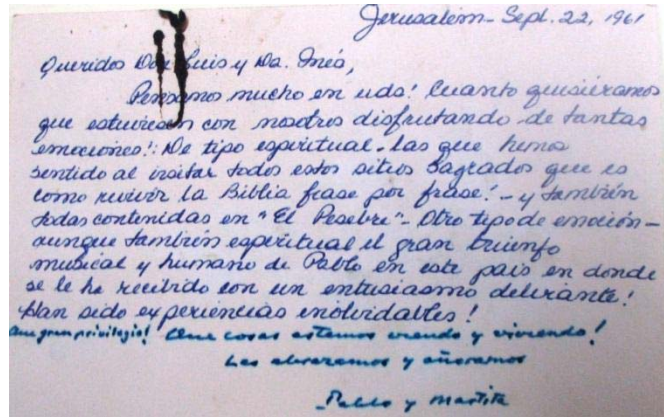 Jerusalem - Sept. 22, 1961
Queridos Don Luis y Da. Inés,
Pensamos mucho en uds! Cuanto quisiéramos
que estuviesen con nosotros disfrutando de tantas
emociones!: De tipo espiritual - las que hemos
sentido al visitar todos estos sitios sagrados que es
como revivir la Biblia frase por frase! - y también
todas contenidas en "El Pesebre" - Otro tipo de emoción -
aunque también espiritual el gran triunfo
musical y humano de Pablo en este país en donde
se le ha recibido con un entusiasmo delirante!
Han sido experiencias inolvidables!
Que gran privilegio! Que cosas estamos viendo y viviendo!
Les abrazamos y añoramos
Pablo y Martita